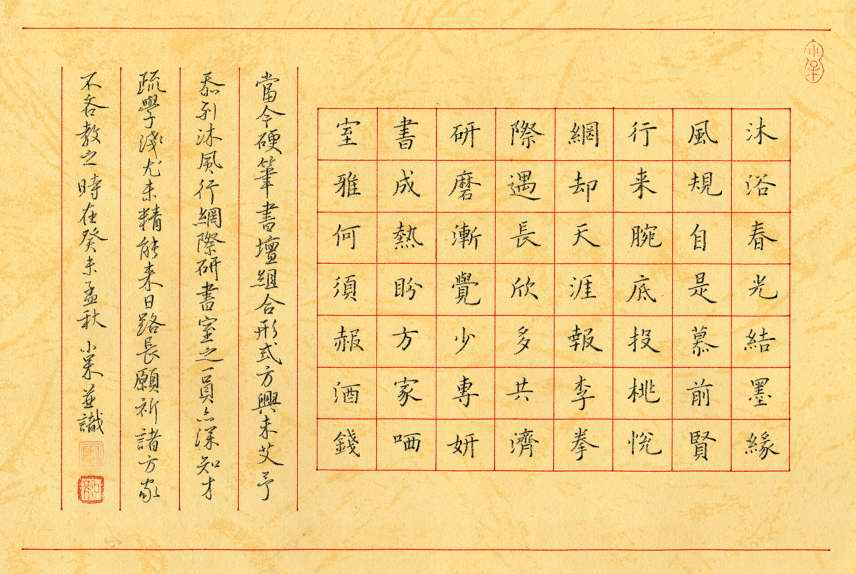 沐浴春光結墨緣
風規自是慕前賢
行来腕底投桃悅
網却天涯報李拳
際遇長欣多共濟
研磨漸覺少專妍
書成熱盼方家哂
室雅何須赧酒錢
當今硬筆書壇組合形式方興未艾予
忝列沐風行網際研書室之一員亦深知才
疏學淺尤未精能来日路長願祈諸方家
不吝教之時在癸未孟秋小並識